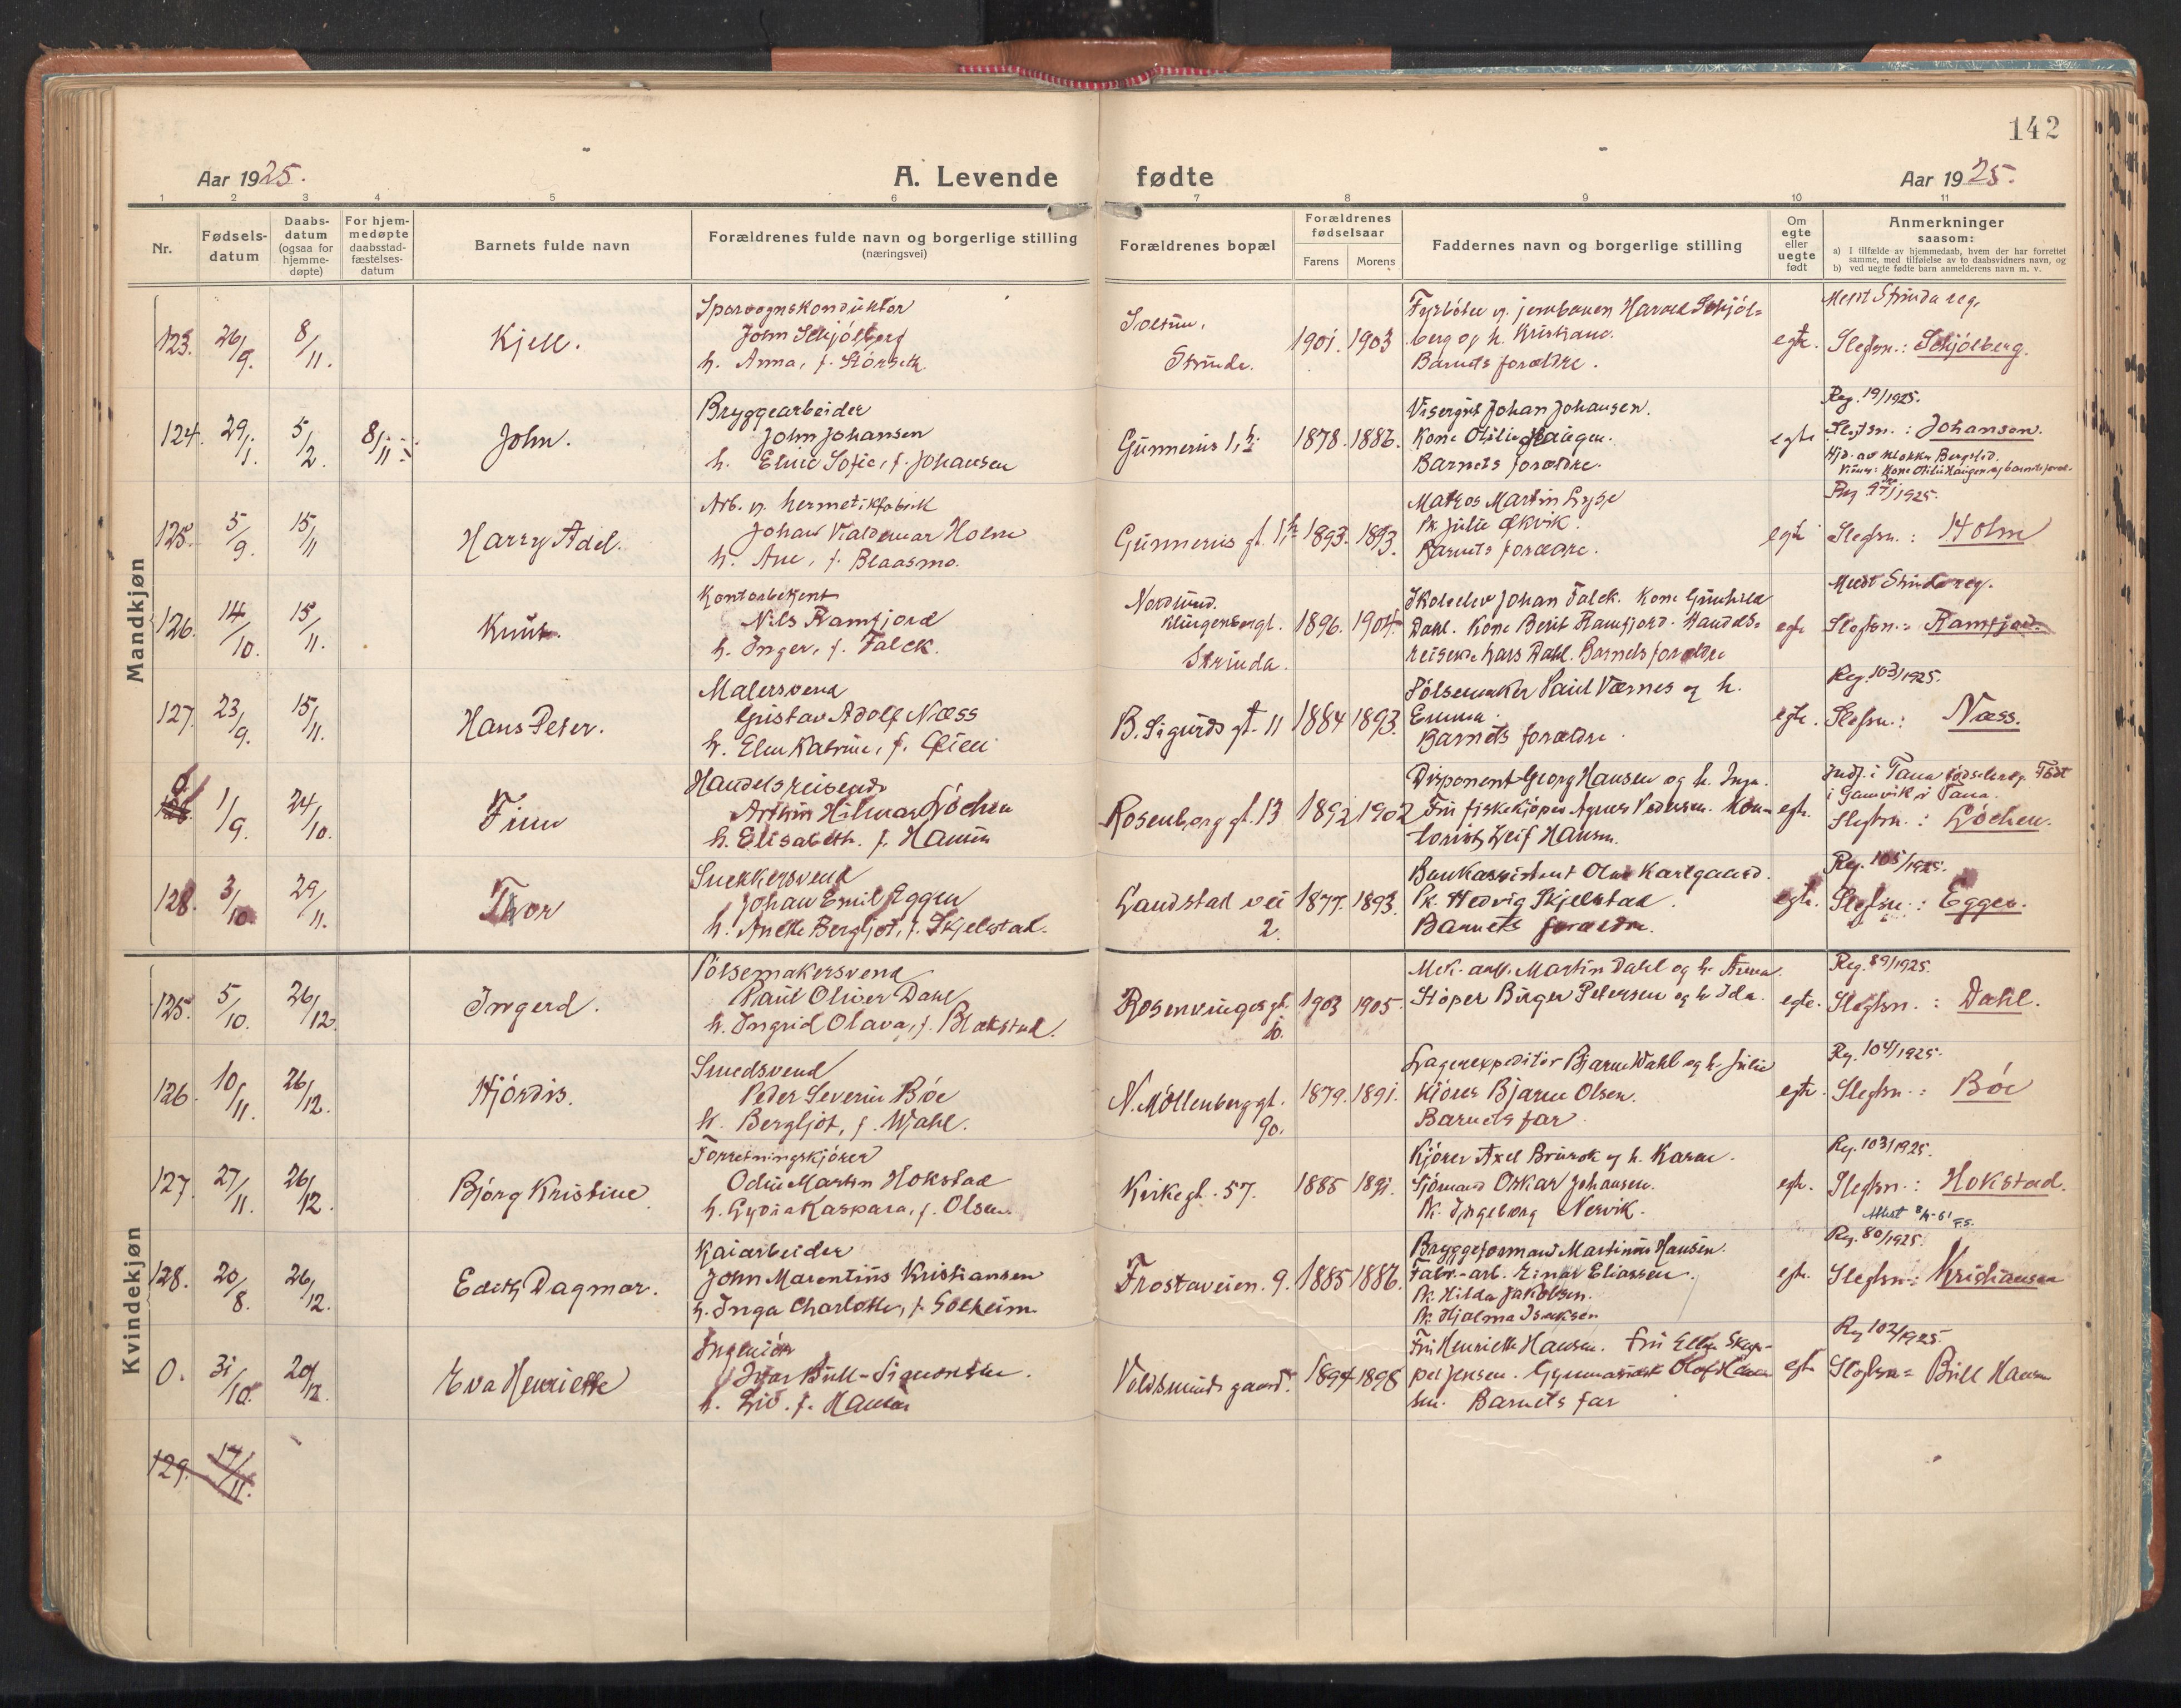 142
Aar 1925.
A. Levende fødte
Aar 1925.
1 2 3 4 5 6 7 8 9 10 11
Nr.
Fødsels-
datum
Daabs-
datum
(ogsaa for
hjemme-
døpte)
For hjem-
medøpte
daabsstad-
fæstelses-
datum
Barnets fulde navn
Forældrenes fulde navn og borgerlige stilling
(næringsvei)
Forældrenes bopæl
Forældrenes
fødselsaar
Farens
Morens
Faddernes navn og borgerlige stilling
Om
egte
eller
uegte
født
Anmerkninger
saasom:
a) I tilfælde av hjemmedaab, hvem der har forrettet
samme, med tilføielse av to daabsvidners navn, og
b) ved uegte fødte barn anmelderens navn m. v.
Mandkjøn
123. 26/9. 8/11.
Kjell.
Sporvognskonduktør
John Schjølberg
h. Anna, f. Størseth.
Strinda.
1901. 1903
Fyrbøter v. jernbanen Harald Schjøl-
berg og h. Kristiane.
Barnets forældre.
egte.
Meldt Strinda reg.
Slegtsn.: Schjølberg.
124. 29/1. 5/2. 8/11
John.
Bryggearbeider
John Johansen
h. Elvie Sofie, f. Johansen
Gunnerus
1878. 1886.
Visergut Johan Johansen.
Kone Otilie Haugen.
Barnets forældre.
egte
Reg. 19/1925.
Slegtsn.: Johansen.
Hjd. av klokker Bergslid.
Kone Otilie Haugen og barnets foræl.
125. 5/9. 15/11
Harry Adel.
Arb. v. hermetikfabrik
Johan Valdemar Holm
h. Ane, f. Blaasmo.
Gunnerus gt.
1893. 1893.
Matros Martin Lyse
Pk. Julie Økvik.
Barnets forældre.
egte
Reg 97/1925.
Slegtsn.: Holm
126. 14/10. 15/11.
Knut.
Kontorbetjent
Nils Ramfjord
h. Inger, f. Falck.
Nordlund.
Klingenberggt.
Strinda.
1896. 1904.
Skoleelev Johan Falck. Kone Gunhild
Dahl. Kone Berit Ramfjord. Handels-
reisende Lars Dahl. Barnets forældre
egte
Meldt Strinda reg.
Slegtsn.: Ramfjord.
127. 23/9. 15/11.
Hans Peter.
Malersvend
Gustav Adolf Næss
h. Elen Katrine, f. Øien
B. Sigurds gt. 11
1884 1893.
Pølsemaker Paul Værnes og h.
Emma.
Barnets forældre.
egte.
Reg. 103/1925.
Slegtsn.: Næss.
0 1/9. 24/10.
Finn
Handelsreisende
Arthur Hilmar Løchen
h. Elisabeth. f. Hansen
Rosenborg gt. 13
1892 1902
Disponent Georg Hansen og h. Inga.
Fru fiskekjøper Agnes Pedersen. Kon-
torist Leif Hansen.
egte.
Indf. i Tana fødselsreg. Født
i Gamvik i Tana.
Slegtsn.: Løchen.
128. 3/10. 29/11.
Thor
Snekkersvend
Johan Emil Eggen
h. Anette Bergljot, f. Skjelstad.
Landstad vei
2.
1877. 1893.
Bankassistent Olav Karlgaard.
Pk. Hedvig Skjelstad.
Barnets forældre.
egte.
Reg. 105/1925.
Slegtsn.: Eggen.
Kvindekjøn
125. 5/10. 26/12.
Ingerd.
Pølsemakersvend
Paul Oliver Dahl
h. Ingrid Olava, f. Blækstad.
Rosenvinges gt.
10.
1903 1905.
Mek. arb. Martin Dahl og h. Anna.
Støper Birger Petersen og h. Ida.
egte.
Reg. 89/1925.
Slegtsn.: Dahl.
126. 10/11. 26/12.
Hjørdis.
Smedsvend
Peder Severin Bøe
h. Bergljot, f. Wahl.
N. Møllenberggt.
90.
1879. 1891.
Lagerexpeditør Bjarne Wahl og h. Julie
Kjører Bjarne Olsen.
Barnets far.
egte.
Reg. 104/1925.
Slegtsn.: Bøe
127. 27/11. 26/12.
Bjørg Kristine
Forretningskjører
Odin Martin Hokstad
h. Lydia Kaspara, f. Olsen.
Kirkegt. 57.
1885 1891.
Kjører Axel Brurok og h. Karen.
Sjømand Oskar Johansen.
Pk. Ingeborg Nervik.
egte.
Reg. 103/1925.
Slegtsn.: Hokstad.
128. 20/8. 26/12.
Edith Dagmar.
Kaiarbeider
John Marentius Kristiansen
h. Inga Charlotte, f. Solheim.
Frostaveien. 9.
1885 1886.
Bryggeformand Martinus Hansen.
Fabr.-arb. Einar Eliassen.
Pk. Hilda Jakobsen.
Pk. Hjalma Isaksen
egte.
Reg. 80/1925.
Slegtsn.: Kristiansen
0. 31/10. 20/12.
Eva Henriette
Ingeniør
Ivar Bull-Simonsen.
h. Liv. f. Hansen
Voldsminde gaard.
1894 1898
Fru Henriette Hansen. Fru Ellen Skap-
pel Jensen. Gymnasiast Olaf Han-
sen. Barnets far
egte
Reg 102/1925.
Slegtsn.: Bull Hansen
129. 17/11.